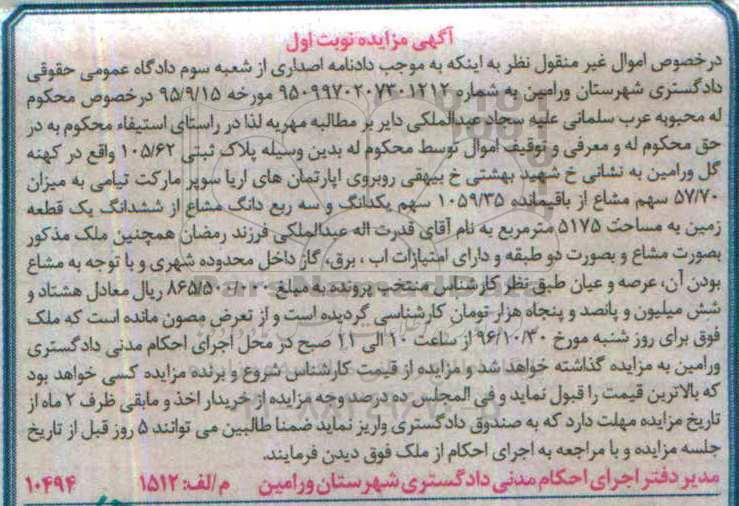 آگهی مزایده نوبت اول
درخصوص اموال غیر منقول نظر به اینکه به موجب دادنامه اصداری از شعبه سوم دادگاه عمومی حقوقی
دادگستری شهرستان ورامین به شماره ۹۵۰۹۹۷۰۲۰۷۳۰۱۲۱۲ مورخه ۹۵/۹/۱۵ درخصوص محکوم
له محبوبه عرب سلمانی علیه سجاد عبدالملکی دایر بر مطالبه مهریه لذا در راستای استیفاء محکوم به در
حق محکوم له و معرفی و توقیف اموال توسط محکوم له بدین وسیله پلاک ثبتی ۱۰۵/۶۲ واقع در کهنه
گل ورامین به نشانی خ شهید بهشتی خ بیهقی روبروی اپارتمان های اریا سوپر مارکت تیامی به میزان
۵۷/۷۰ سهم مشاع از باقیمانده ۱۰۵۹/۳۵ سهم یکدانگ و سه ربع دانگ مشاع از ششدانگ یک قطعه
زمین به مساحت ۵۱۷۵ مترمربع به نام آقای قدرت اله عبدالملکی فرزند رمضان همچنین ملک مذکور
بصورت مشاع و بصورت دو طبقه و دارای امتیازات اب ، برق، گاز داخل محدوده شهری و با توجه به مشاع
بودن آن، عرصه و عیان طبق نظر کارشناس منتخب پرونده به مبلغ ۸۶۵/۵۰۰/۰۰۰ ریال معادل هشتاد و
شش میلیون و پانصد و پنجاه هزار تومان کارشناسی گردیده است و از تعرض مصون مانده است که ملک
فوق برای روز شنبه مورخ ۹۶/۱۰/۳۰ از ساعت ۱۰ الی ۱۱ صبح در محل اجرای احکام مدنی دادگستری
ورامین به مزایده گذاشته خواهد شد و مزایده از قیمت کارشناس شروع و برنده مزایده کسی خواهد بود
که بالاترین قیمت را قبول نماید و فی المجلس ده درصد وجه مزایده از خریدار اخذ و مابقی ظرف ۲ ماه از
تاریخ مزایده مهلت دارد که به صندوق دادگستری واریز نماید ضمنا طالبین می توانند ۵ روز قبل از تاریخ
جلسه مزایده و با مراجعه به اجرای احکام از ملک فوق دیدن فرمایند.
مدیر دفتر اجرای احکام مدنی دادگستری شهرستان ورامین م/لف: ۱۵۱۲ ۱۰۴۹۴